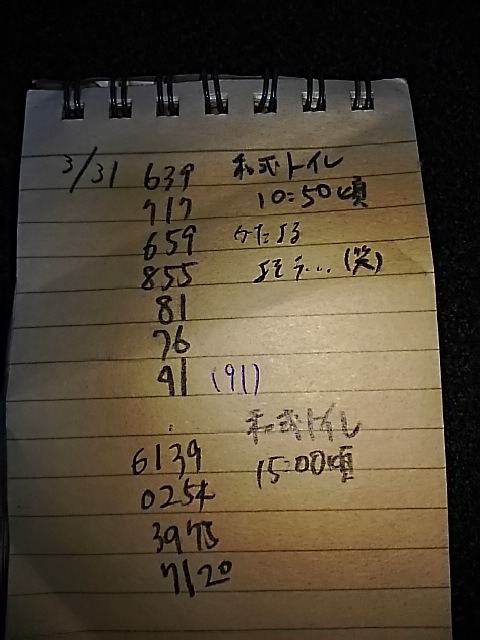 3/31 639 和式トイレ
717 10:50頃
659 かたよる
855 よそう...(笑)
81
76
91 (91)
:
6139 和式トイレ
0254 15:00頃
3975
7120